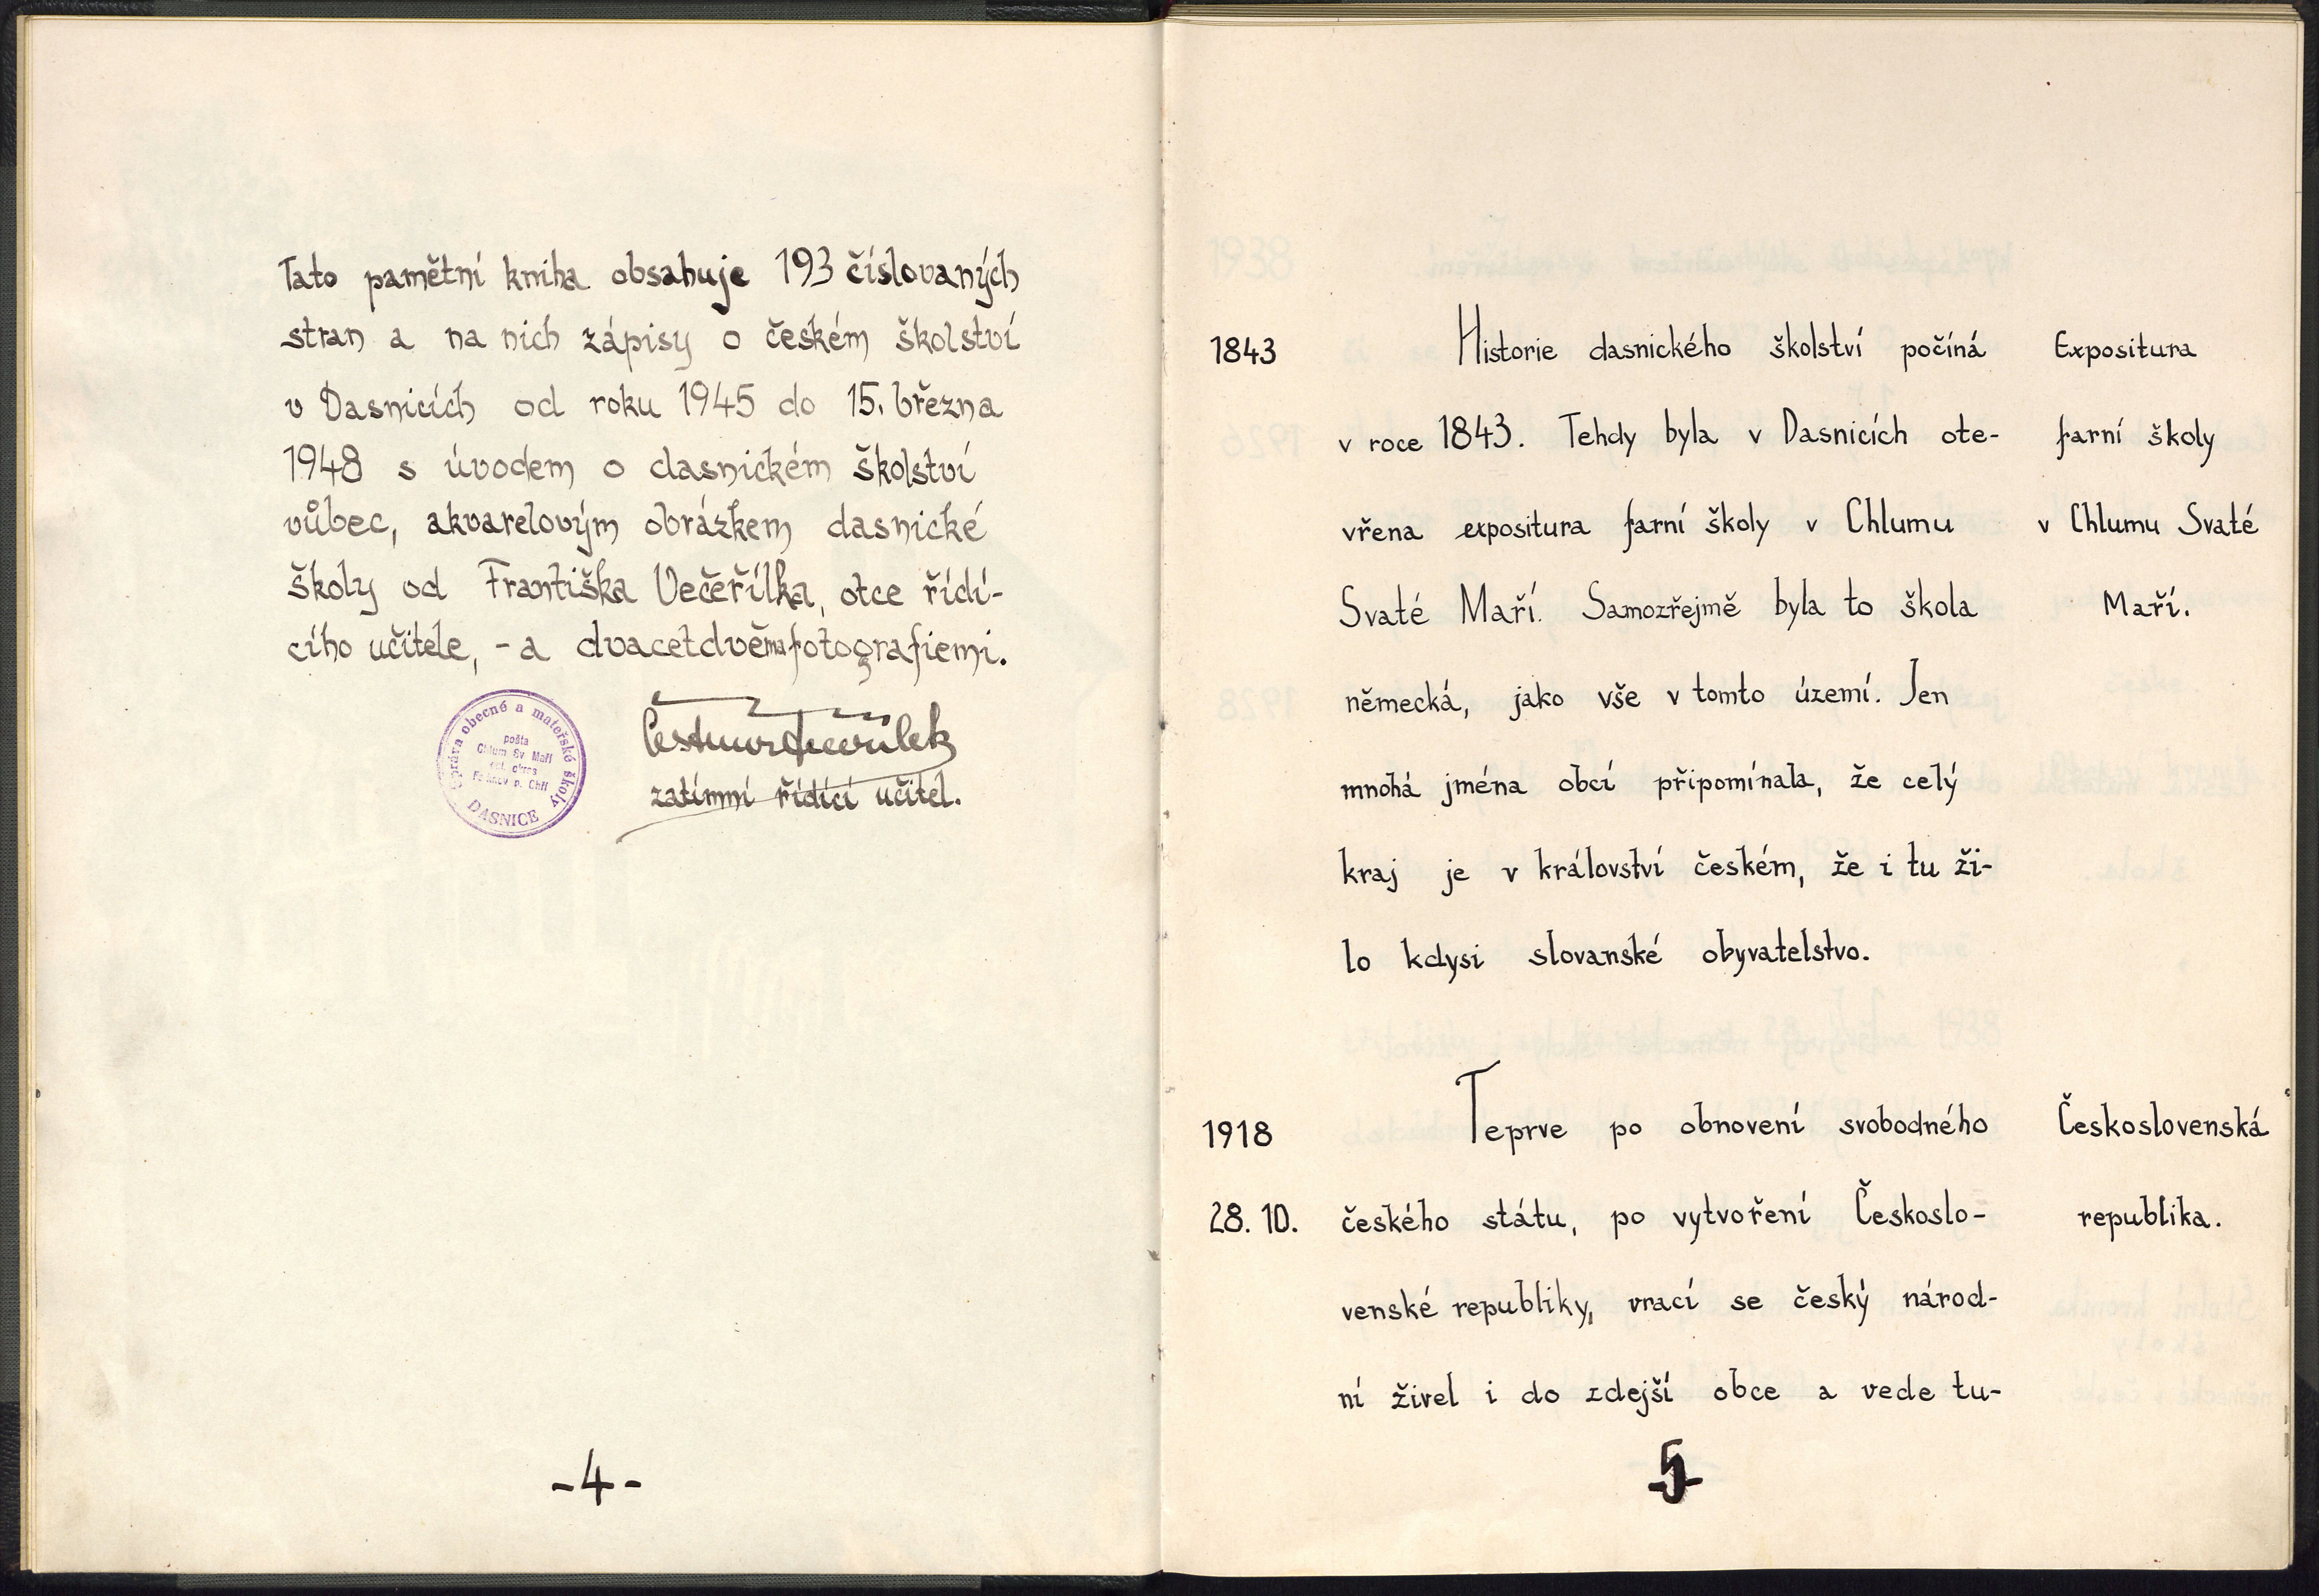 Tato pamětní kniha obsahuje 193 číslovaných
stran a na nich zápisy o českém školství
v Dasnicích od roku 1945 do 15. března
1948 s úvodem o dasnickém školství
vůbec, akvarelovým obrázkem dasnické
školy od Františka Večeřílka, otce řídí-
cího učitele, - a dvacetdvěma fotografiemi.
Správa obecné a mateřské školy
pošta
Chlum Sv. Maří
DASNICE
zatímní řídící učitel.
-4-
1843
Historie dasnického školství počíná
v roce 1843. Tehdy byla v Dasnicích ote-
vřena expositura farní školy v Chlumu
Svaté Maří. Samozřejmě byla to škola
německá, jako vše v tomto území. Jen
mnohá jména obcí připomínala, že celý
kraj je v království českém, že i tu ži-
lo kdysi slovanské obyvatelstvo.
Expositura
farní školy
v Chlumu Svaté
Maří.
1918
28. 10.
Teprve po obnovení svobodného
českého státu, po vytvoření Českoslo-
venské republiky, vrací se český národ-
ní živel i do zdejší obce a vede tu-
Československá
republika.
-5-